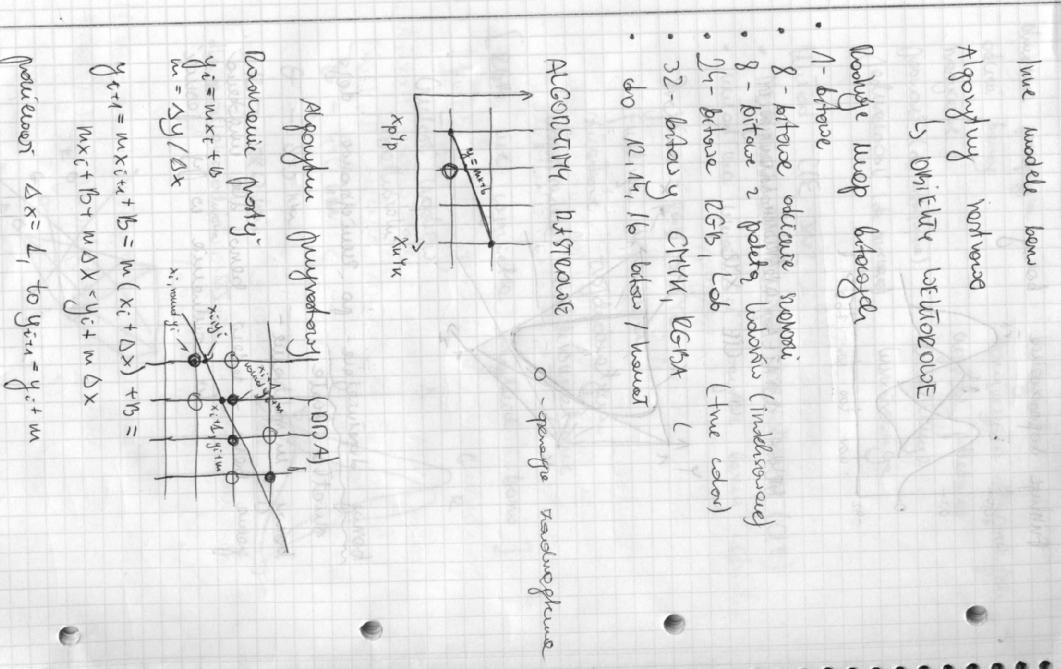 Inne modele barw
Algorytmy rastrowe
↳ OBIEKTY WEKTOROWE
Rodzaje map bitowych
• 1-bitowe
• 8-bitowe odcienie szarości
• 8-bitowe z paletą kolorów (indeksowane)
• 24-bitowe RGB, Lab (true color)
• 32-bitowy CMYK, RGBA (
• do 12, 14, 16 bitów / kanał
ALGORYTMY RASTROWE
○ - operacja zaokrąglenia
y=mx+b
xp yp
xk yk
Algorytm przyrostowy (DDA)
Równanie prostej
yi = mxi + B
m = Δy/Δx
yi+1 = mxi+1 + B = m(xi + Δx) + B =
mxi + B + mΔx = yi + mΔx
ponieważ Δx = 1, to yi+1 = yi + m
xi, round yi
xi yi
xi+1, yi+m